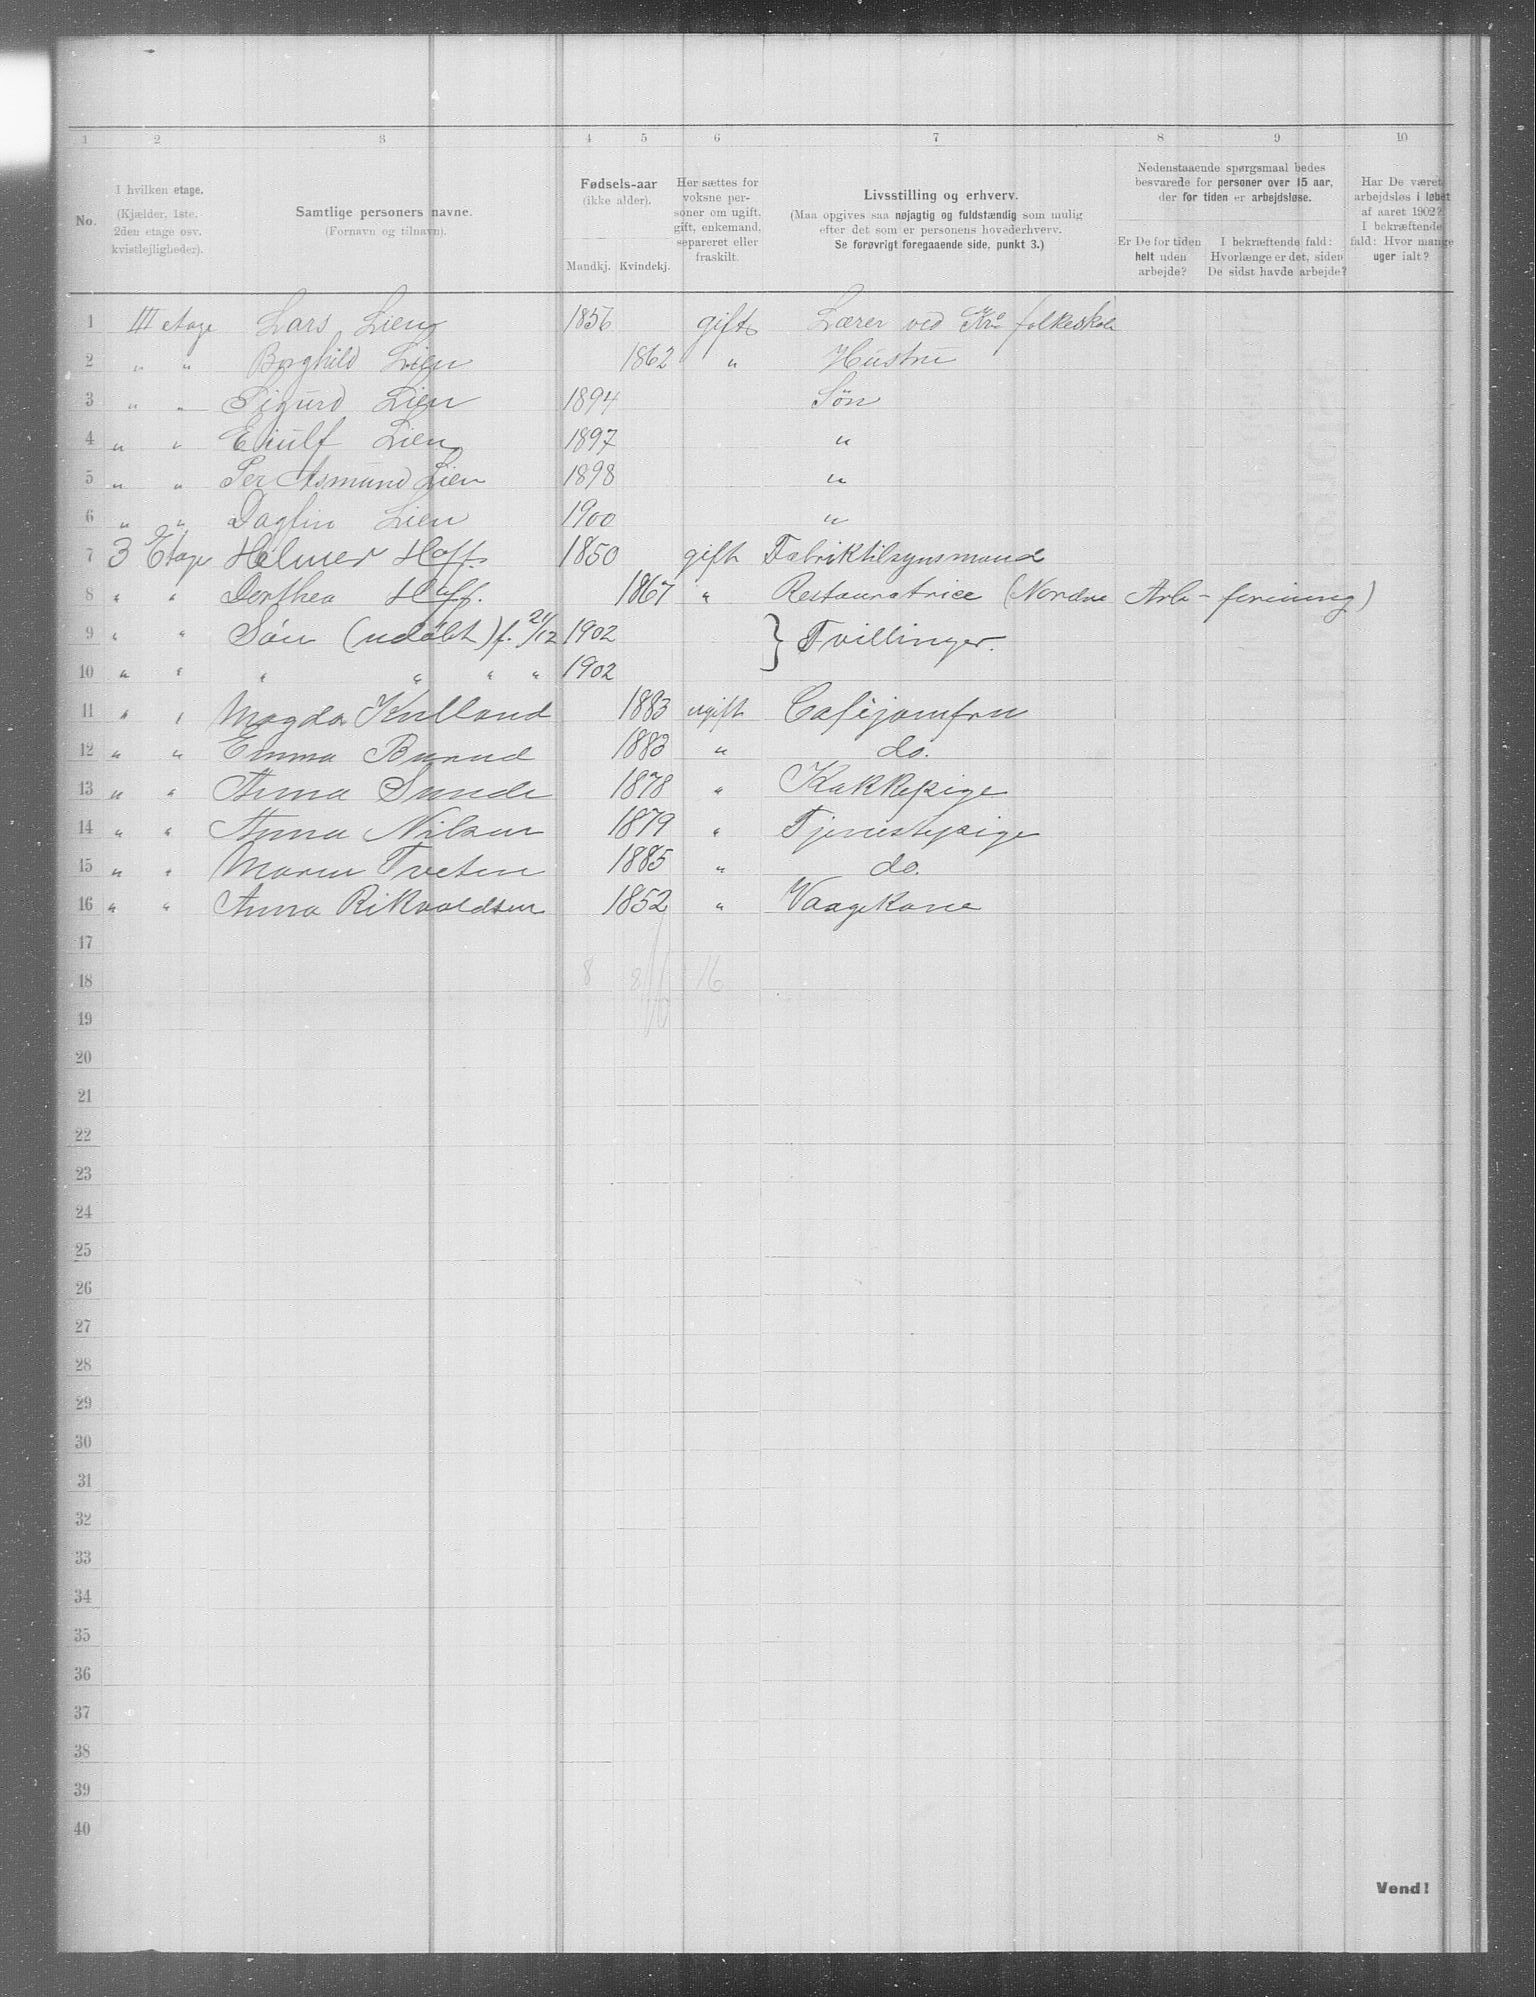 1 2 3 4 5 6 7 8 9 10
No.
I hvilken etage.
(Kjælder, 1ste,
2den etage osv.
kvistlejligheder).
Samtlige personers navne.
(Fornavn og tilnavn).
Fødsels-aar
(ikke alder).
Mandkj. Kvindekj.
Her sættes for
voksne per-
soner om ugift,
gift, enkemand,
separeret eller
fraskilt.
Livsstilling og erhverv.
(Maa opgives saa nøjagtig og fuldstændig som mulig
efter det som er personens hovederhverv.
Se forøvrigt foregaaende side, punkt 3.)
Nedenstaaende spørgsmaal bedes
besvarede for personer over 15 aar,
der for tiden er arbejdsløse.
Er De for tiden
helt uden
arbejde?
I bekræftende fald:
Hvorlænge er det, siden
De sidst havde arbejde?
Har De været
arbejdsløs i løbet
af aaret 1902?
I bekræftende
fald: Hvor mange
uger ialt?
1 III etage Lars Lien 1856 gift Lærer ved Kra folkeskole
2 " " Borghild Lien 1862 " Hustru
3 " " Sigurd Lien 1894 Søn
4 " " Eiulf Lien 1897 "
5 " " Per Asmund Lien 1898 "
6 " " Dagfin Lien 1900 "
7 3 Etage Helmer Hoff. 1850 gift Fabriktilsynsmand
8 " " Dorthea Hoff. 1867 " Restauratrice (Nordre Arb-forening)
9 " " Søn (udøbt) f. 21/12 1902 } Tvillinger.
10 " " " " " " 1902
11 " " Magda Kulland 1883 ugift Caféjomfru
12 " " Emma Burud 1883 " do.
13 " " Anna Sunde 1878 " Kokkepige
14 " " Anna Nilsen 1879 " Tjenestepige
15 " " Maren Tveten 1885 " do.
16 " " Anna Rikvoldsen 1852 " Vaagekone
17
18 8 8 16
19
20
21
22
23
24
25
26
27
28
29
30
31
32
33
34
35
36
37
38
39
40
Vend!